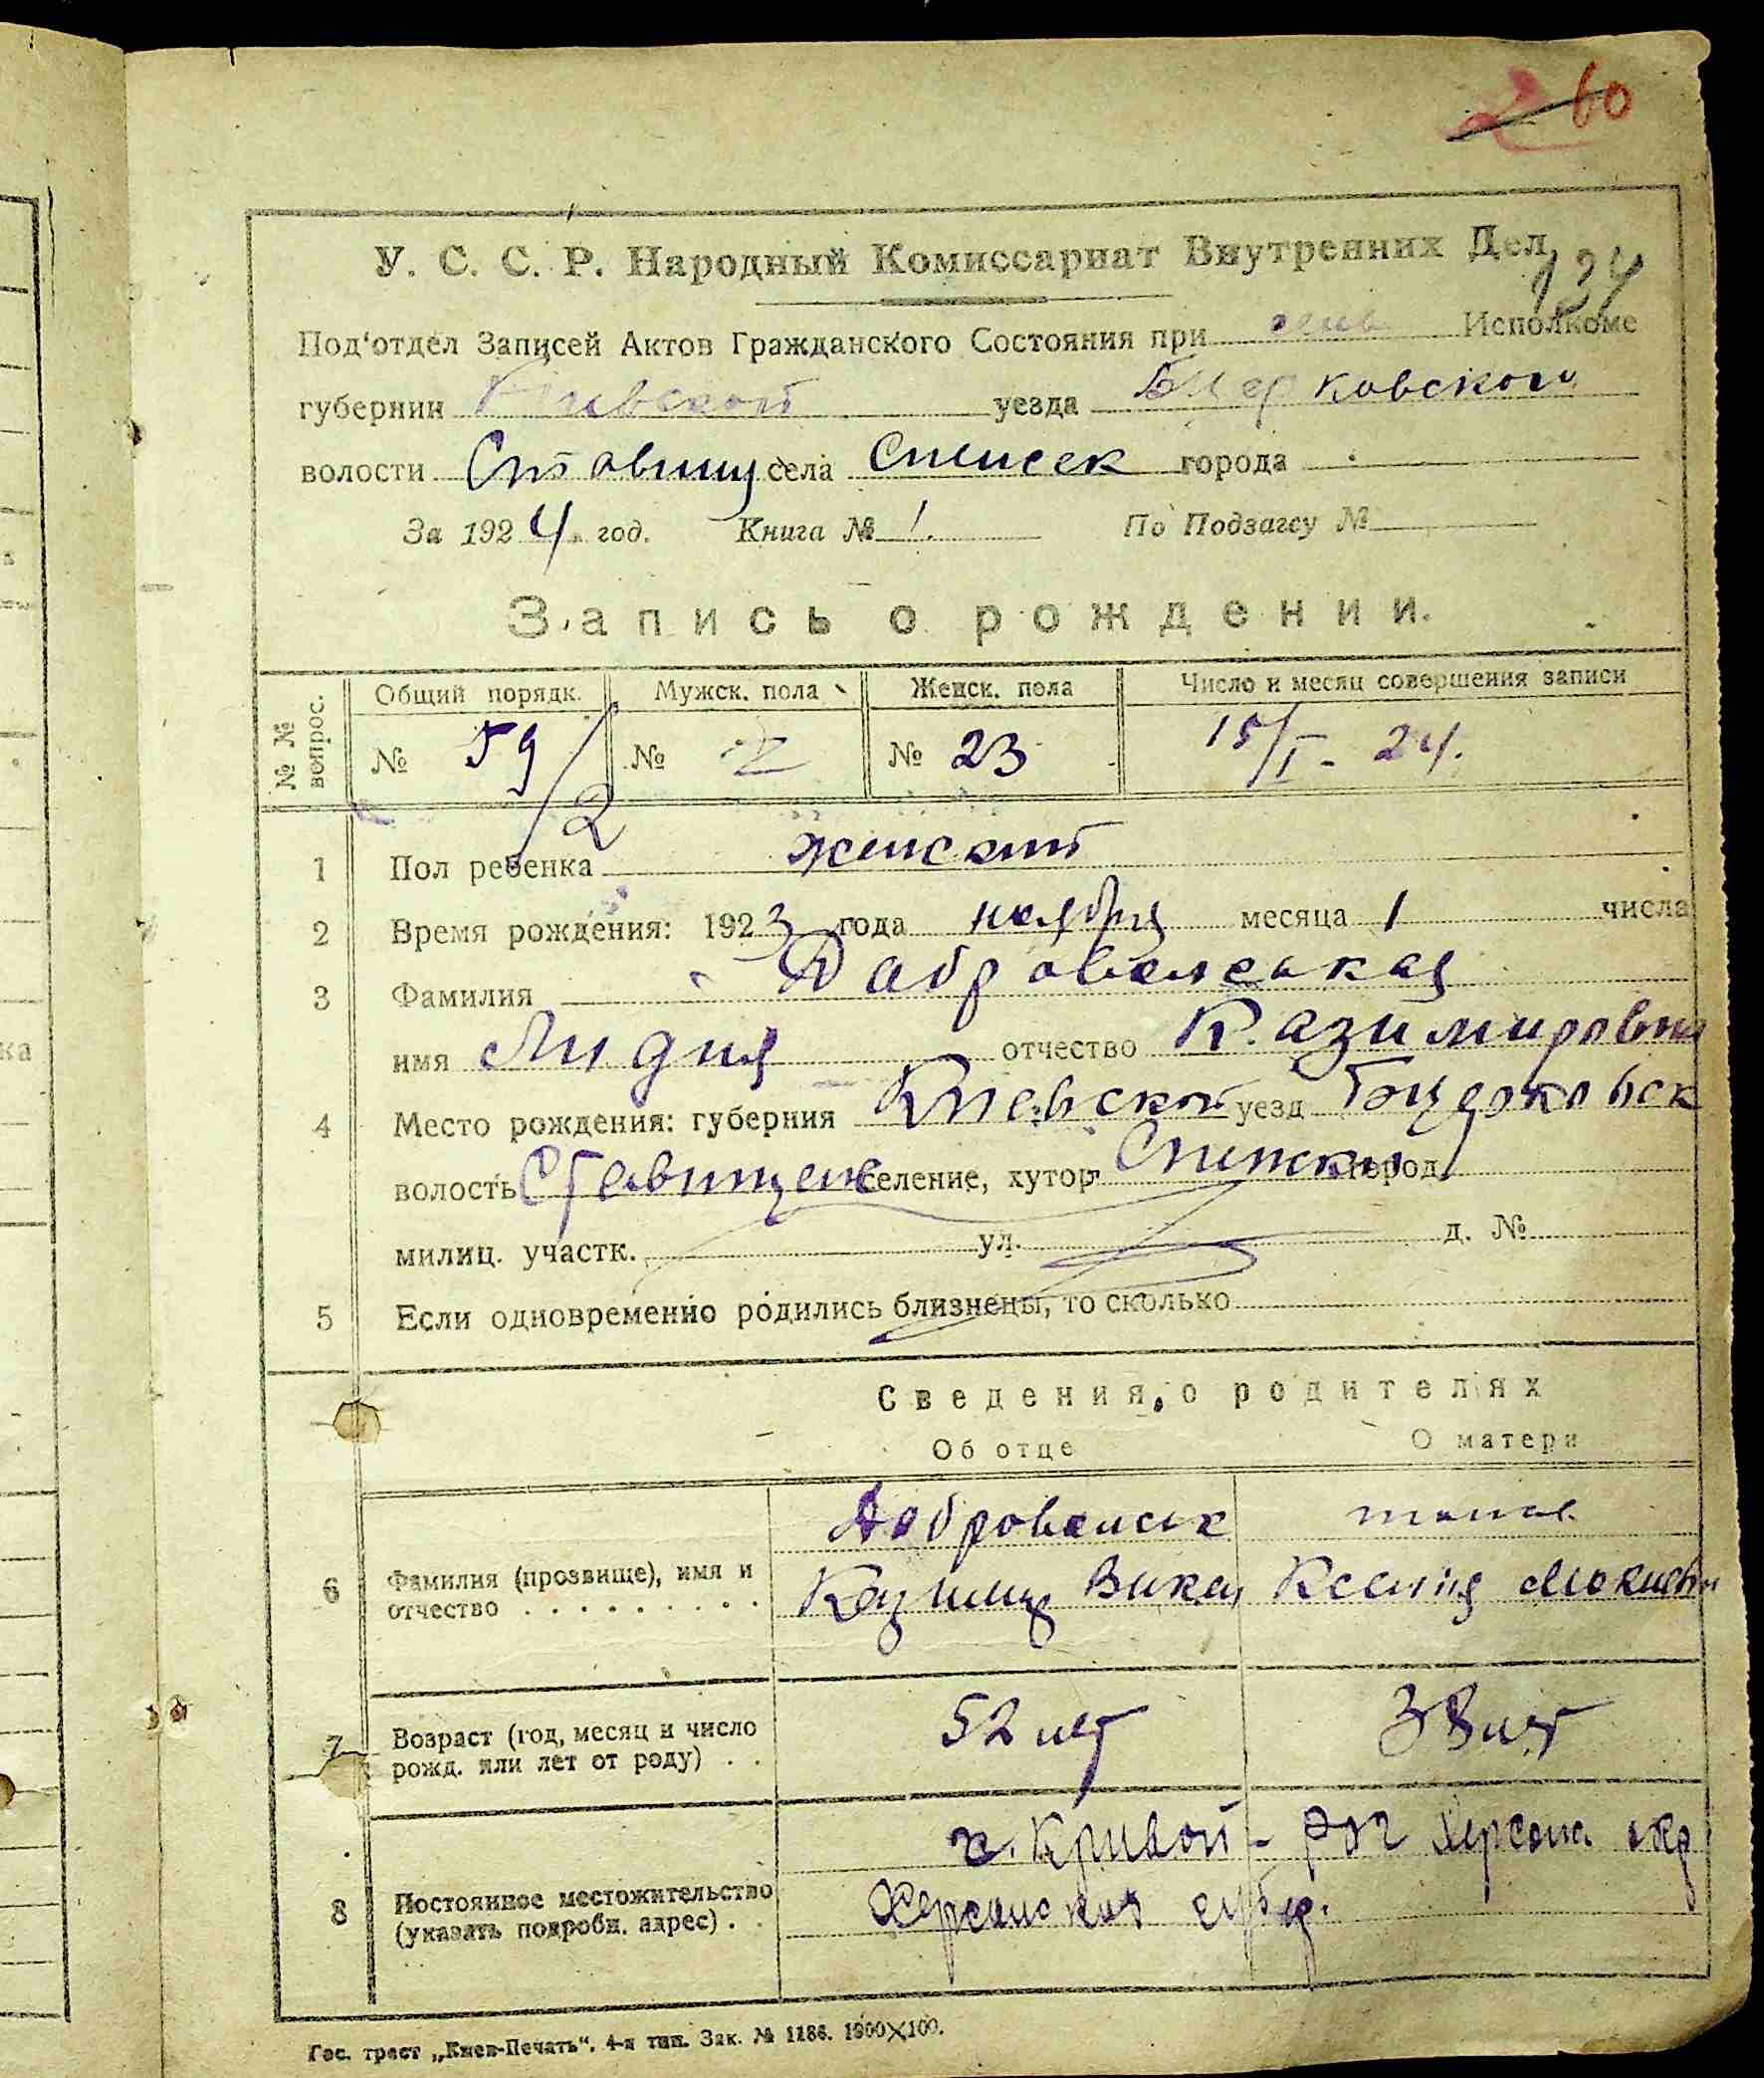 2 60
У. С. С. Р. Народный Комиссариат Внутренних Дел
134
Под'отдел Записей Актов Гражданского Состояния при Исполкоме
губернии Киевской уезда БЦерковского
волости Ставищ села города
За 1924 год. Книга № 1. По Подзагсу №
Запись о рождении.
№№ вопрос. Общий порядк. Мужск. пола Женск. пола Число и месяц совершения записи
№ 59/2 № № 23 15/I - 24.
1 Пол ребенка женский
2 Время рождения: 1923 года ноября месяца 1 числа
3 Фамилия Добровольская
имя Лидия отчество Казимировна
4 Место рождения: губерния Киевской уезд Бцерковск
волость Ставищен селение, хутор город
милиц. участк. ул. д. №
5 Если одновременно родились близнецы, то сколько
Сведения о родителях
Об отце О матери
6 Фамилия (прозвище), имя и отчество
Добровольск
Казимир Викен Ксения
7 Возраст (год, месяц и число рожд. или лет от роду)
52 лет 38 лет
8 Постоянное местожительство (указать подробн. адрес)
Кривой - Рог Херсонск окр
Херсонская губер.
Гос. трест „Киев-Печать“. 4-я тип. Зак. № 1186. 1900×100.